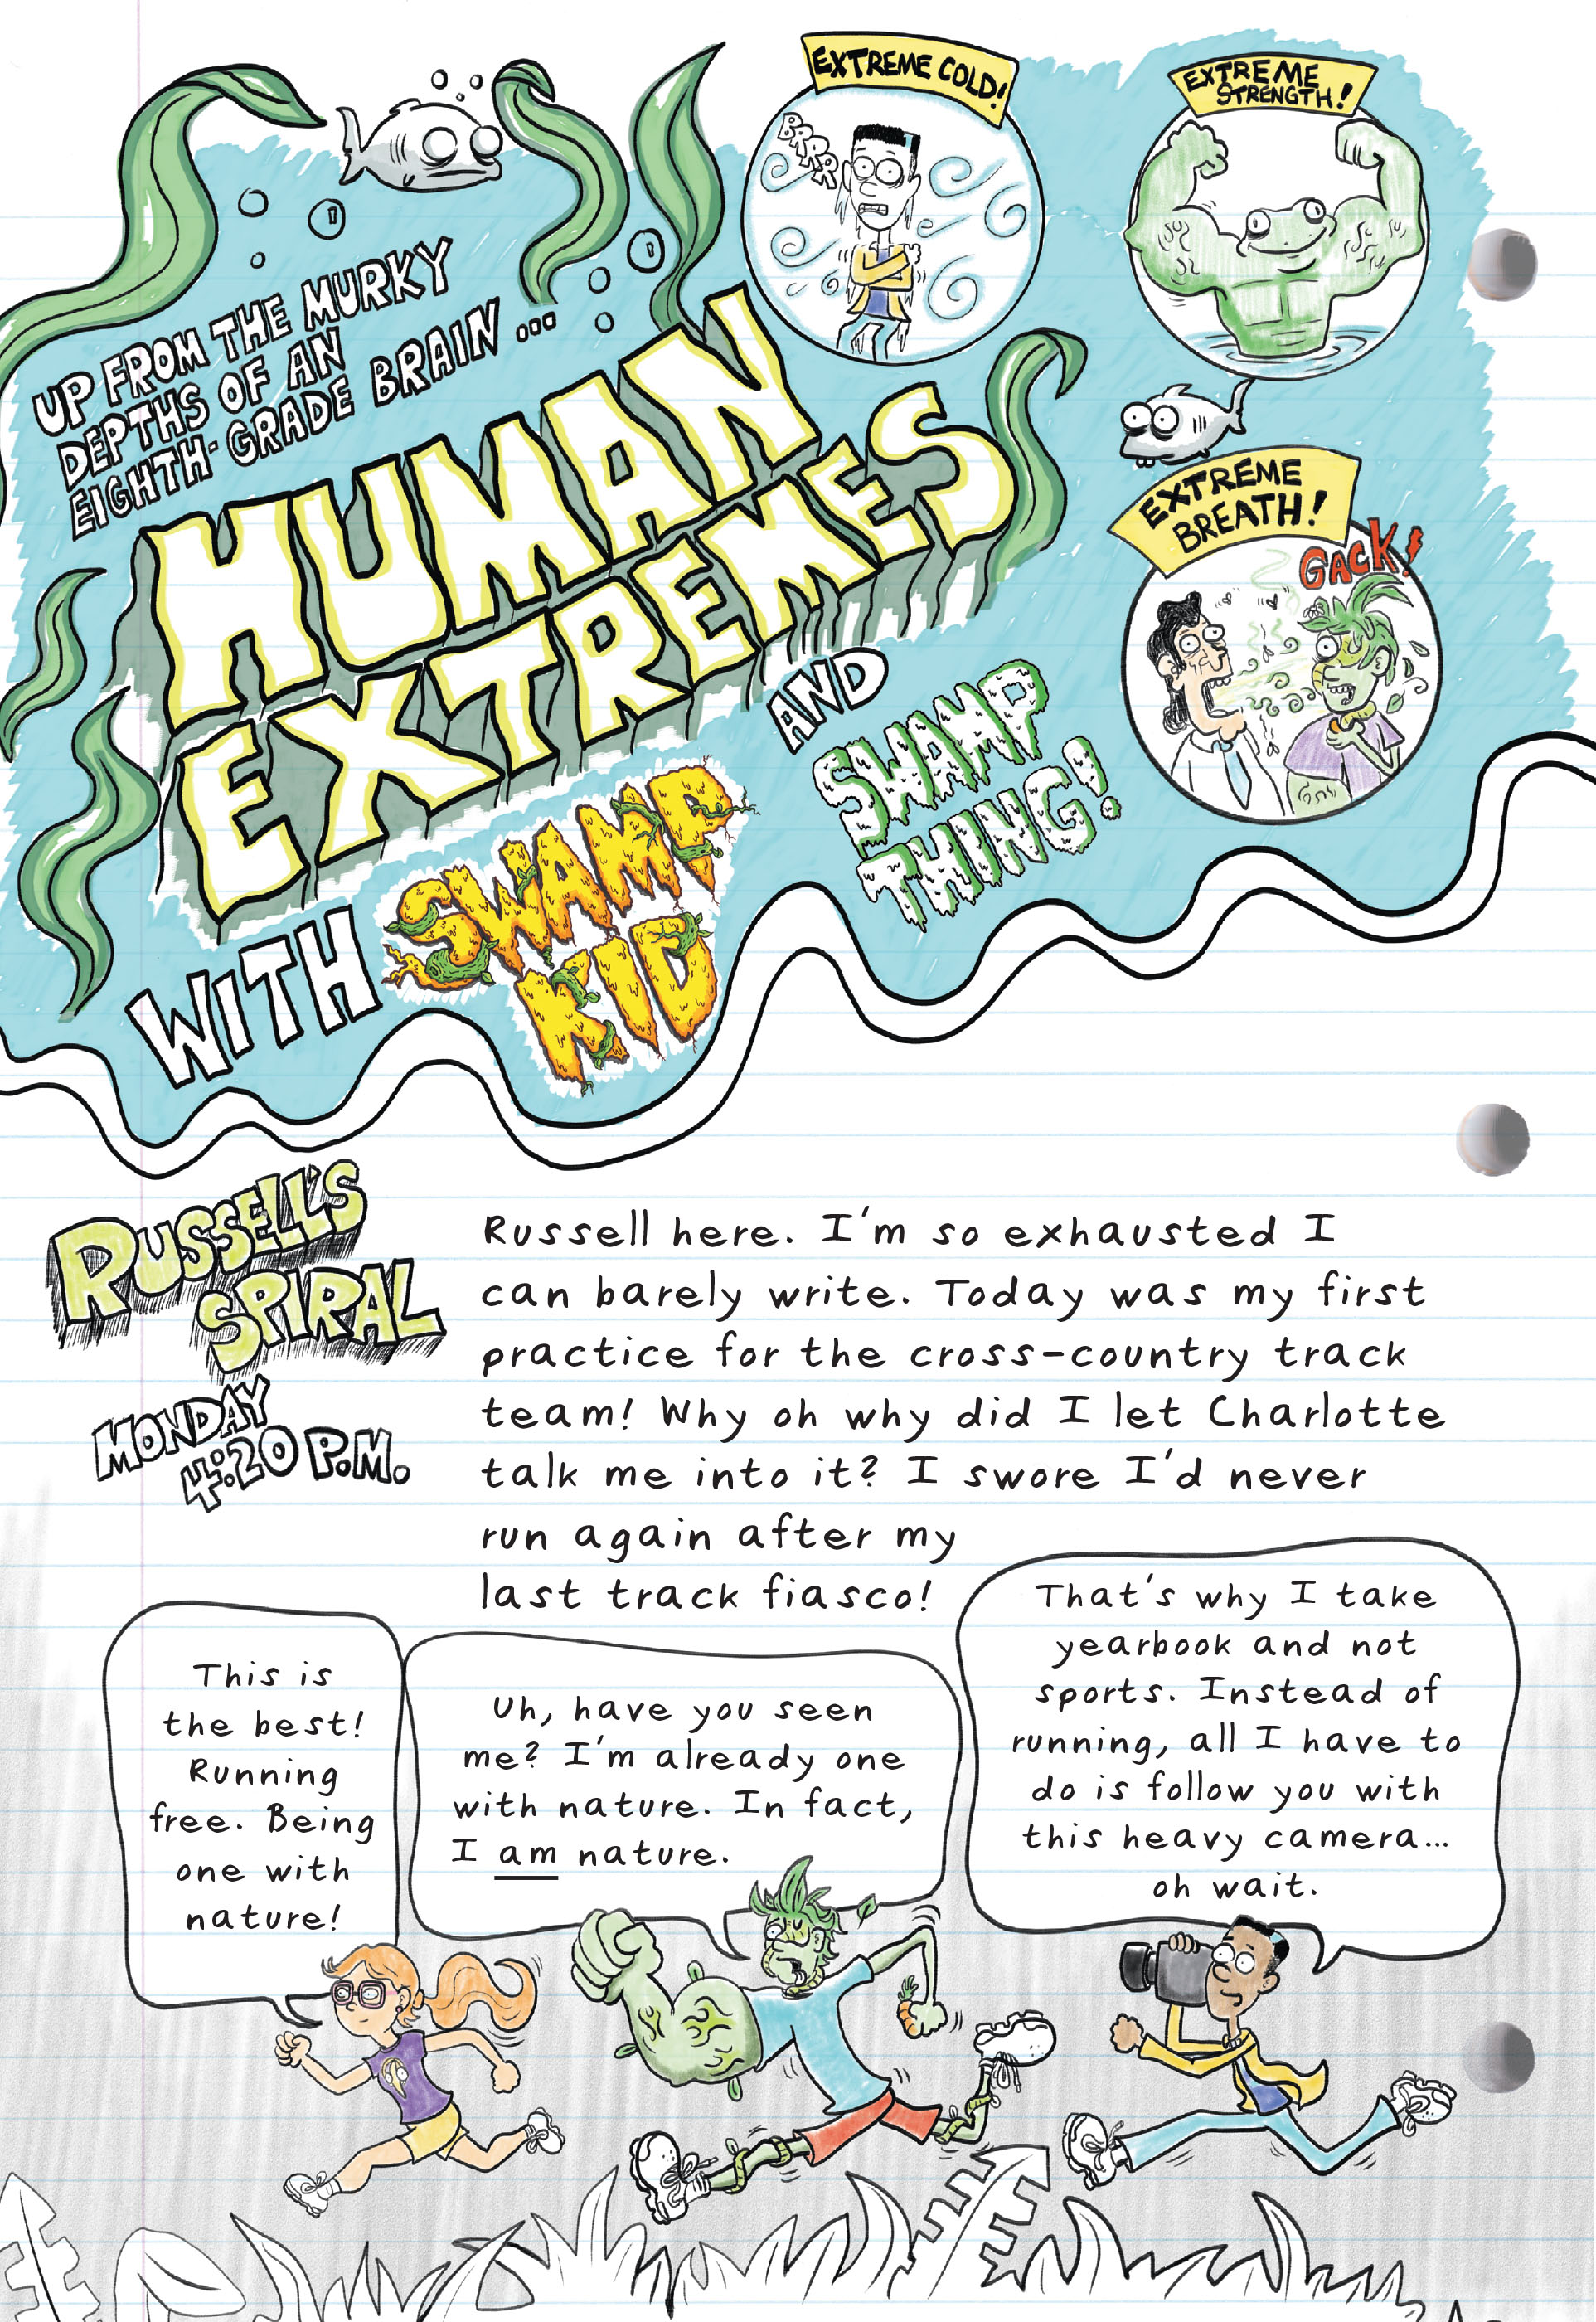 UP FROM THE MURKY
DEPTHS OF AN
EIGHTH-GRADE BRAIN...
HUMAN
EXTREMES
WITH
SWAMP
KID
AND
SWAMP
THING!
EXTREME COLD!
BRRRR
EXTREME
STRENGTH!
EXTREME
BREATH!
GACK!
RUSSELL'S
SPIRAL
MONDAY
4:20 P.M.
Russell here. I'm so exhausted I
can barely write. Today was my first
practice for the cross-country track
team! Why oh why did I let Charlotte
talk me into it? I swore I'd never
run again after my
last track fiasco!
This is
the best!
Running
free. Being
one with
nature!
Uh, have you seen
me? I'm already one
with nature. In fact,
I am nature.
That's why I take
yearbook and not
sports. Instead of
running, all I have to
do is follow you with
this heavy camera...
oh wait.